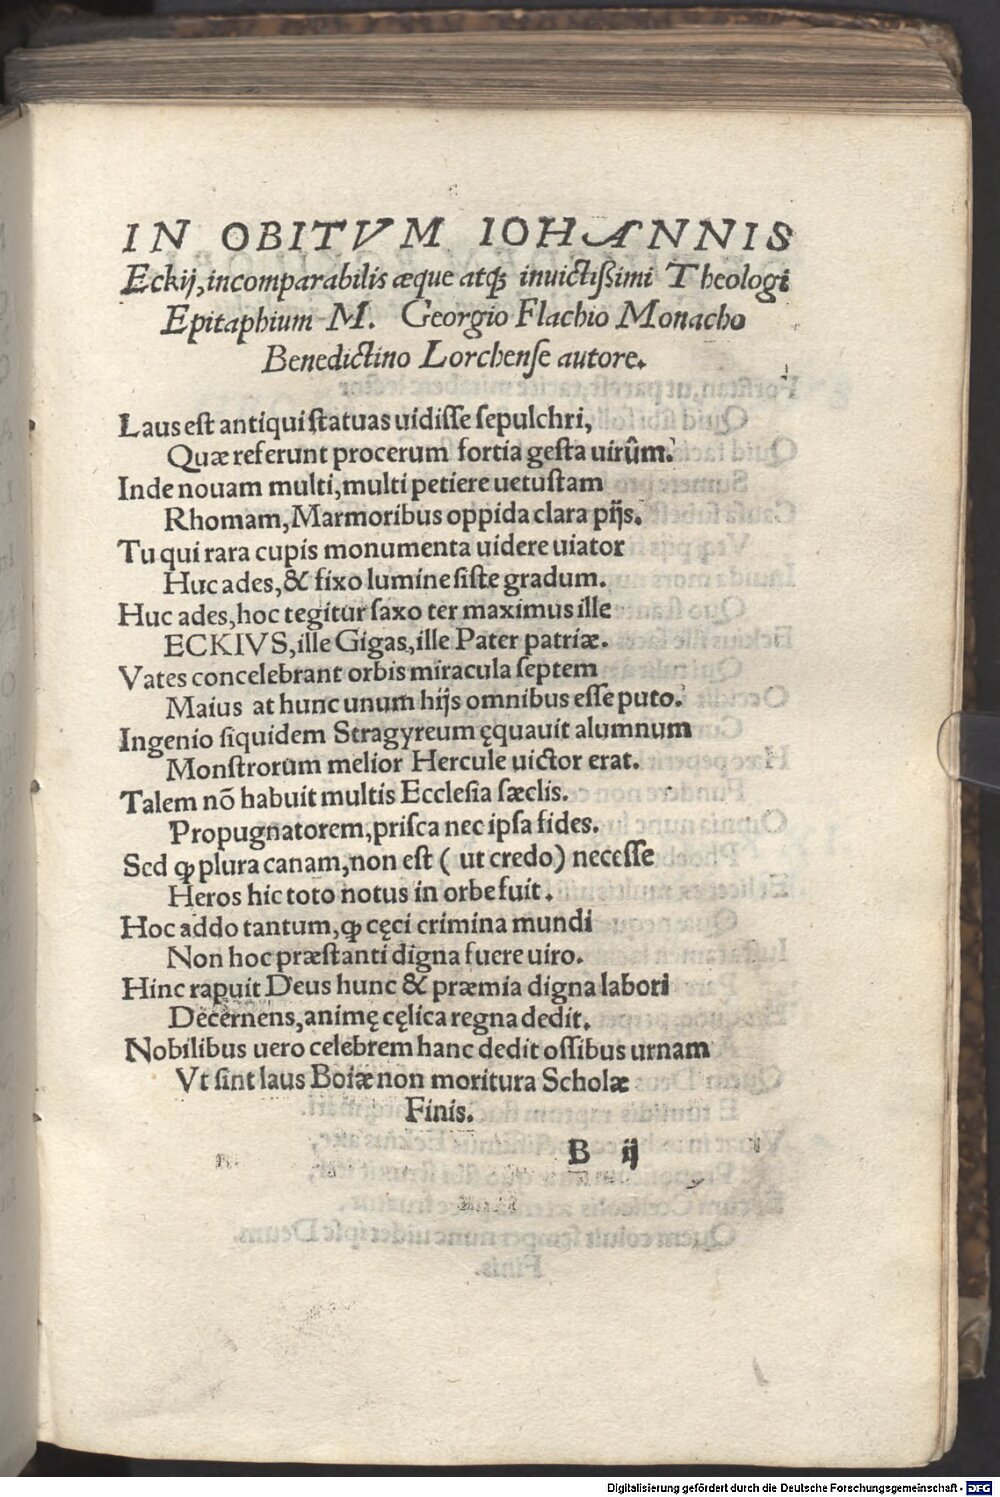 IN OBITVM IOHANNIS
Eckij, incomparabilis æque atq; inuictißimi Theologi
Epitaphium M. Georgio Flachio Monacho
Benedictino Lorchenſe autore.
Laus eſt antiqui ſtatuas uidiſſe ſepulchri,
Quæ referunt procerum fortia geſta uirûm.
Inde nouam multi, multi petiere uetuſtam
Rhomam, Marmoribus oppida clara pijs.
Tu qui rara cupis monumenta uidere uiator
Huc ades, & fixo lumine ſiſte gradum.
Huc ades, hoc tegitur ſaxo ter maximus ille
ECKIVS, ille Gigas, ille Pater patriæ.
Vates concelebrant orbis miracula ſeptem
Maius at hunc unum hijs omnibus eſſe puto.
Ingenio ſiquidem Stragyreum ęquauit alumnum
Monſtrorum melior Hercule uictor erat.
Talem nō habuit multis Eccleſia ſæclis.
Propugnatorem, priſca nec ipſa fides.
Sed ꝙ plura canam, non eſt ( ut credo) neceſſe
Heros hic toto notus in orbe fuit.
Hoc addo tantum, ꝙ cęci crimina mundi
Non hoc præſtanti digna fuere uiro.
Hinc rapuit Deus hunc & præmia digna labori
Decernens, animę cęlica regna dedit.
Nobilibus uero celebrem hanc dedit oſſibus urnam
Vt ſint laus Boiæ non moritura Scholæ
Finis.
B ij
Digitalisierung gefördert durch die Deutsche Forschungsgemeinschaft - DFG